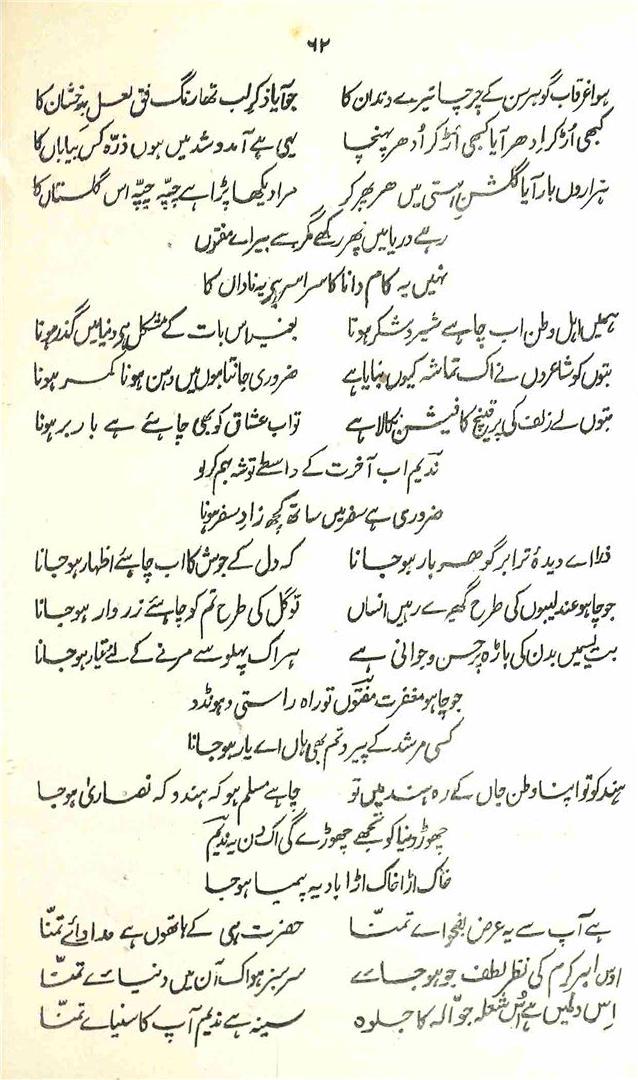 ۶۲
ہوا غرقاب گوہر سن کے چرچا تیرے دندان کا جو آیا ذکرِ لب تھا رنگ فق لعل بدخشان کا
کبھی اُڑ کر اِدھر آیا کبھی اُڑ کر اُدھر پہنچا یہی ہے آمد و شد میں ہوں ذرّہ کس بیاباں کا
ہزاروں بار آیا گلشنِ ہستی میں پھر پھر کر مرا دیکھا پڑا ہے چپّہ چپّہ اس گلستاں کا
رہے دریا میں پھر رکھے مگر سے بیر اے مفتوں
نہیں یہ کام دانا کا سراسر ہے یہ ناداں کا
ہمیں اہل وطن اب چاہے شیر و شکر ہونا بغیر اس بات کے مشکل ہے دنیا میں گذر ہونا
بتوں کو شاعروں نے اک تماشہ کیوں بنایا ہے ضروری جانتا ہوں میں دہن ہونا کمر ہونا
بتوں نے زلف کی پر قینچ کا فیشن نکالا ہے تو اب عشاق کو بھی چاہئے ہے باربر ہونا
ندیم اب آخرت کے واسطے توشہ بہم کر لو
ضروری ہے سفر میں ساتھ کچھ زادِ سفر ہونا
ذرا اے دیدۂ تر ابر گوھر بار ہو جانا کہ دل کے جوش کا اب چاہئے اظہار ہو جانا
جو چاہو عندلیبوں کی طرح گھیرے رہیں انساں تو گل کی طرح تم کو چاہئے زردار ہو جانا
بت سیمیں بدن کی باڑہ پر حسن و جوانی ہے ہر اک پہلو سے مرنے کے لئے تیار ہو جانا
جو چاہو مغفرت مفتوں تو راہ راستی ڈہونڈو
کسی مرشد کے پیرو تم بھی ہاں اے یار ہو جانا
ہند کو تو اپنا وطن جاں کے رہ ہند میں تو چاہے مسلم ہو کہ ہندو کہ نصاریٰ ہو جا
چھوڑ دنیا کو تجھے چھوڑے گی اک دن یہ ندیم
خاک اڑا خاک اڑا بادیہ پیما ہو جا
ہے آپ سے یہ عرض اے تمنّا حضرت ہی کے ہاتھوں ہے مداوائے تمنّا
اوس ابر کرم کی نظر لطف جو ہو جائے سرسبز ہو اک آن میں دنیائے تمنّا
اِس دل میں ہے اُس شعلہ جوّالہ کا جلوہ سینہ ہے ندیم آپ کا سینائے تمنّا